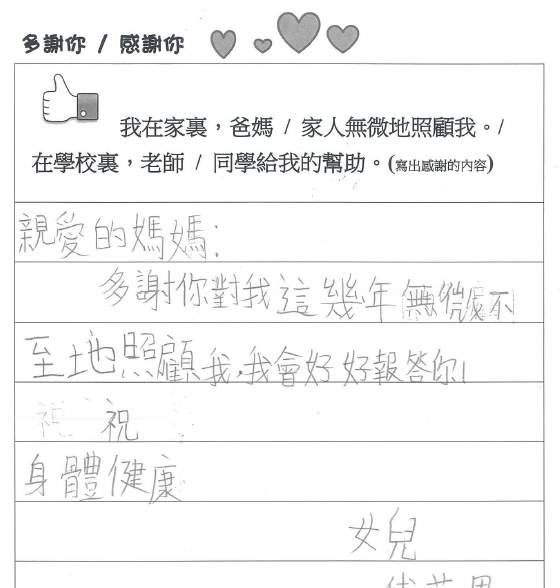 多謝你 / 感謝你
我在家裏，爸媽 / 家人無微地照顧我。/
在學校裏，老師 / 同學給我的幫助。(寫出感謝的內容)
親愛的媽媽:
多謝你對我這幾年無微處不
至地照顧我，我會好好報答你!
祝
身體健康
女兒